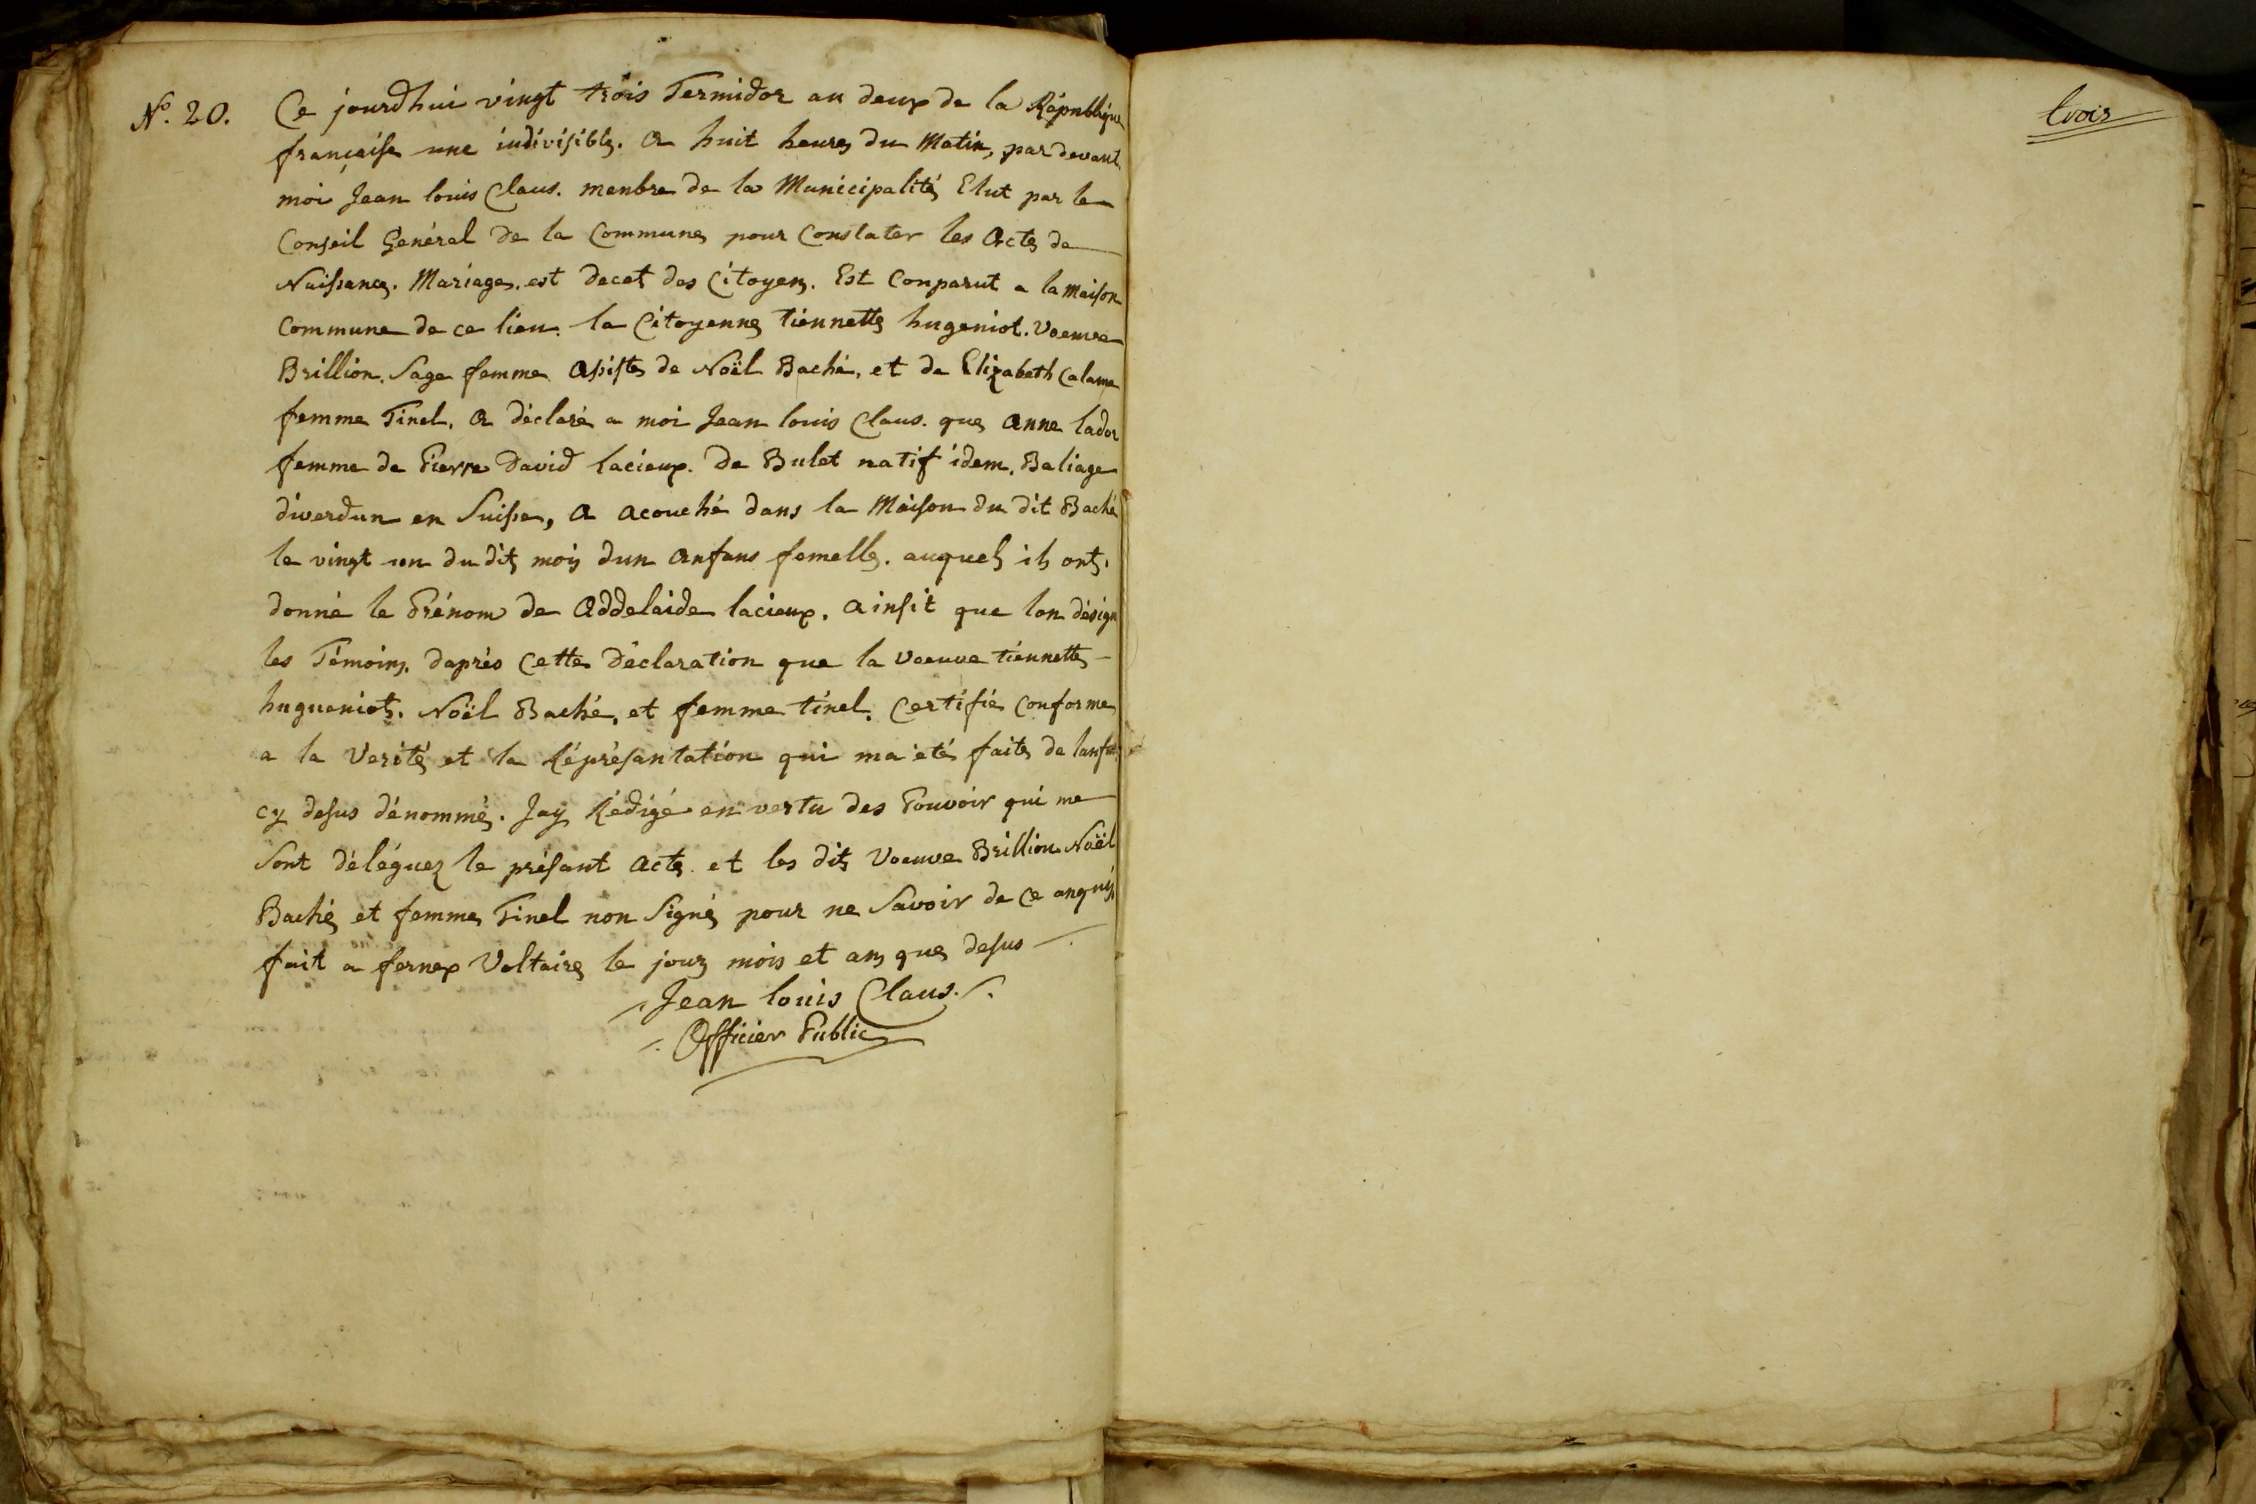 N.º 20.
Ce jourdhui vingt trois Termidor an deux de la République
française une indivisible. a huit heures du Matin, par devant
moi Jean louis Claus. menbre de la Municipalité Elut par le
Conseil Genéral de la Commune pour Constater les Actes de
Naissance. Mariages. est decet des Citoyens. Est Conparut a la Maison
Commune de ce lieu. la Citoyenne tiennette hugeniot. Veuve
Brillion. Sage femme Assistes de Noël Baché, et de Elizabeth Calame
femme Tinel. A déclaré a moi Jean louis Claus. que anne lador
femme de Pierre David lacieux. de Bulet natif idem. Baliage
diverdun en Suisse, a acouché dans la Maison du dit Baché
le vingt un du dit mois dun anfans femelle. auquel ils ont.
donné le Prénom de Addelaide lacieux. ainsit que lon désign
les Témoins. daprès cette déclaration que la Veuve tiennette
hugueniot. Noël Baché, et femme tinel. Certifié Conforme
a la Verité et la Réprésantation qui ma été faite de lanfan
cy desus dénommé. Jay Rédigé en vertu des Pouvoir qui me
Sont déléguez le présant acte. et les dits Veuve Brillion Noël
Baché et femme Tinel non Signé pour ne Savoir de ce anquis
fait a fernex Voltaire le jour mois et ans que desus
Jean louis Claus.
Officier Public
trois